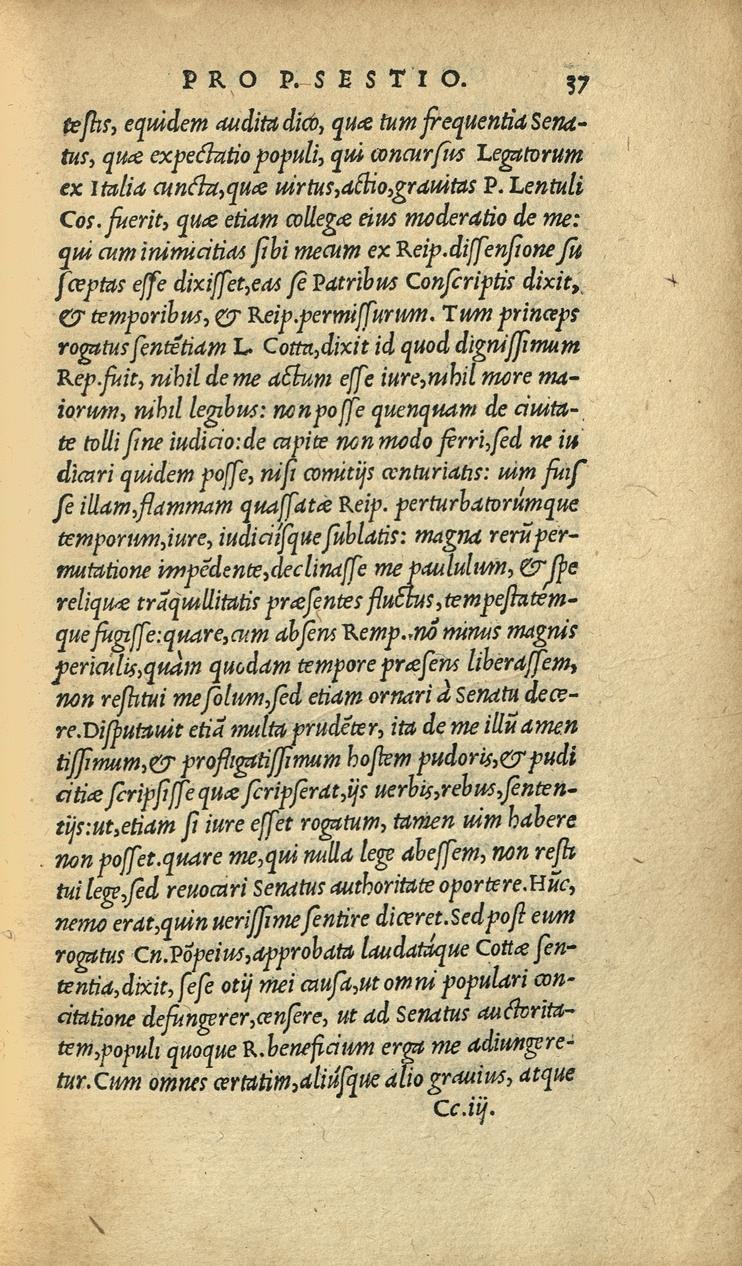 PRO P. SESTIO. 37
testis, equidem audita dico, quæ tum frequentia Sena-
tus, quæ expectatio populi, qui concursus Legatorum
ex Italia cuncta,quæ uirtus,actio,grauitas P. Lentuli
Cos. fuerit, quæ etiam collegæ eius moderatio de me:
qui cum inimicitias sibi mecum ex Reip.dissensione su
sceptas esse dixisset,eas se Patribus Conscriptis dixit,
& temporibus, & Reip.permissurum. Tum princeps
rogatus sentẽtiam L. Cotta,dixit id quod dignissimum
Rep.fuit, nihil de me actum esse iure,nihil more ma-
iorum, nihil legibus: non posse quenquam de ciuita-
te tolli sine iudicio:de capite non modo ferri,sed ne iu
dicari quidem posse, nisi comitijs centuriatis: uim fuis
se illam,flammam quassatæ Reip. perturbatorúmque
temporum,iure, iudiciísque sublatis: magna rerũ per-
mutatione impẽdente,declinasse me paululum, & spe
reliquæ trãquillitatis præsentes fluctus,tempestatem-
que fugisse:quare,cum absens Remp. nõ minus magnis
periculis,quàm quodam tempore præsens liberassem,
non restitui me solum,sed etiam ornari à Senatu dece-
re.Disputauit etiã multa prudẽter, ita de me illũ amen
tissimum,& profligatissimum hostem pudoris,& pudi
citiæ scripsisse quæ scripserat,ijs uerbis,rebus,senten-
tijs:ut,etiam si iure esset rogatum, tamen uim habere
non posset.quare me,qui nulla lege abessem, non resti
tui lege,sed reuocari Senatus authoritate oportere.Hũc,
nemo erat,quin uerissime sentire diceret.Sed post eum
rogatus Cn.Põpeius,approbata laudatáque Cottæ sen-
tentia,dixit, sese otij mei causa,ut omni populari con-
citatione defungerer,censere, ut ad Senatus auctorita-
tem,populi quoque R.beneficium erga me adiungere-
tur.Cum omnes certatim,aliúsque alio grauius, atque
Cc.iij.